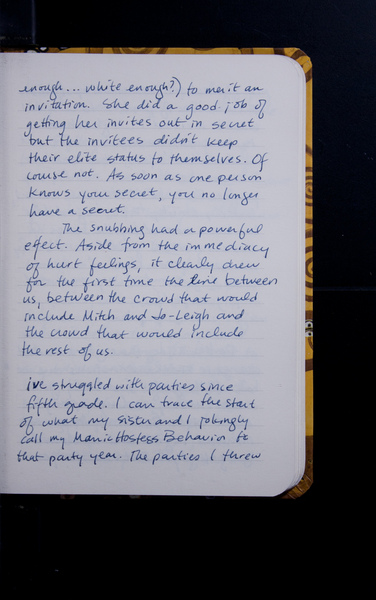 enough... white enough?) to merit an
invitation. She did a good job of
getting her invites out in secret
but the invitees didn't keep
their elite status to themselves. Of
course not. As soon as one person
knows your secret, you no longer
have a secret.
The snubbing had a powerful
effect. Aside from the immediacy
of hurt feelings, it clearly drew
for the first time the line between
us, between the crowd that would
include Mitch and Jo-Leigh and
the crowd that would include
the rest of us.
I've struggled with parties since
fifth grade. I can trace the start
of what my sister and I jokingly
call my Manic Hostess Behavior to
that party year. The parties I threw